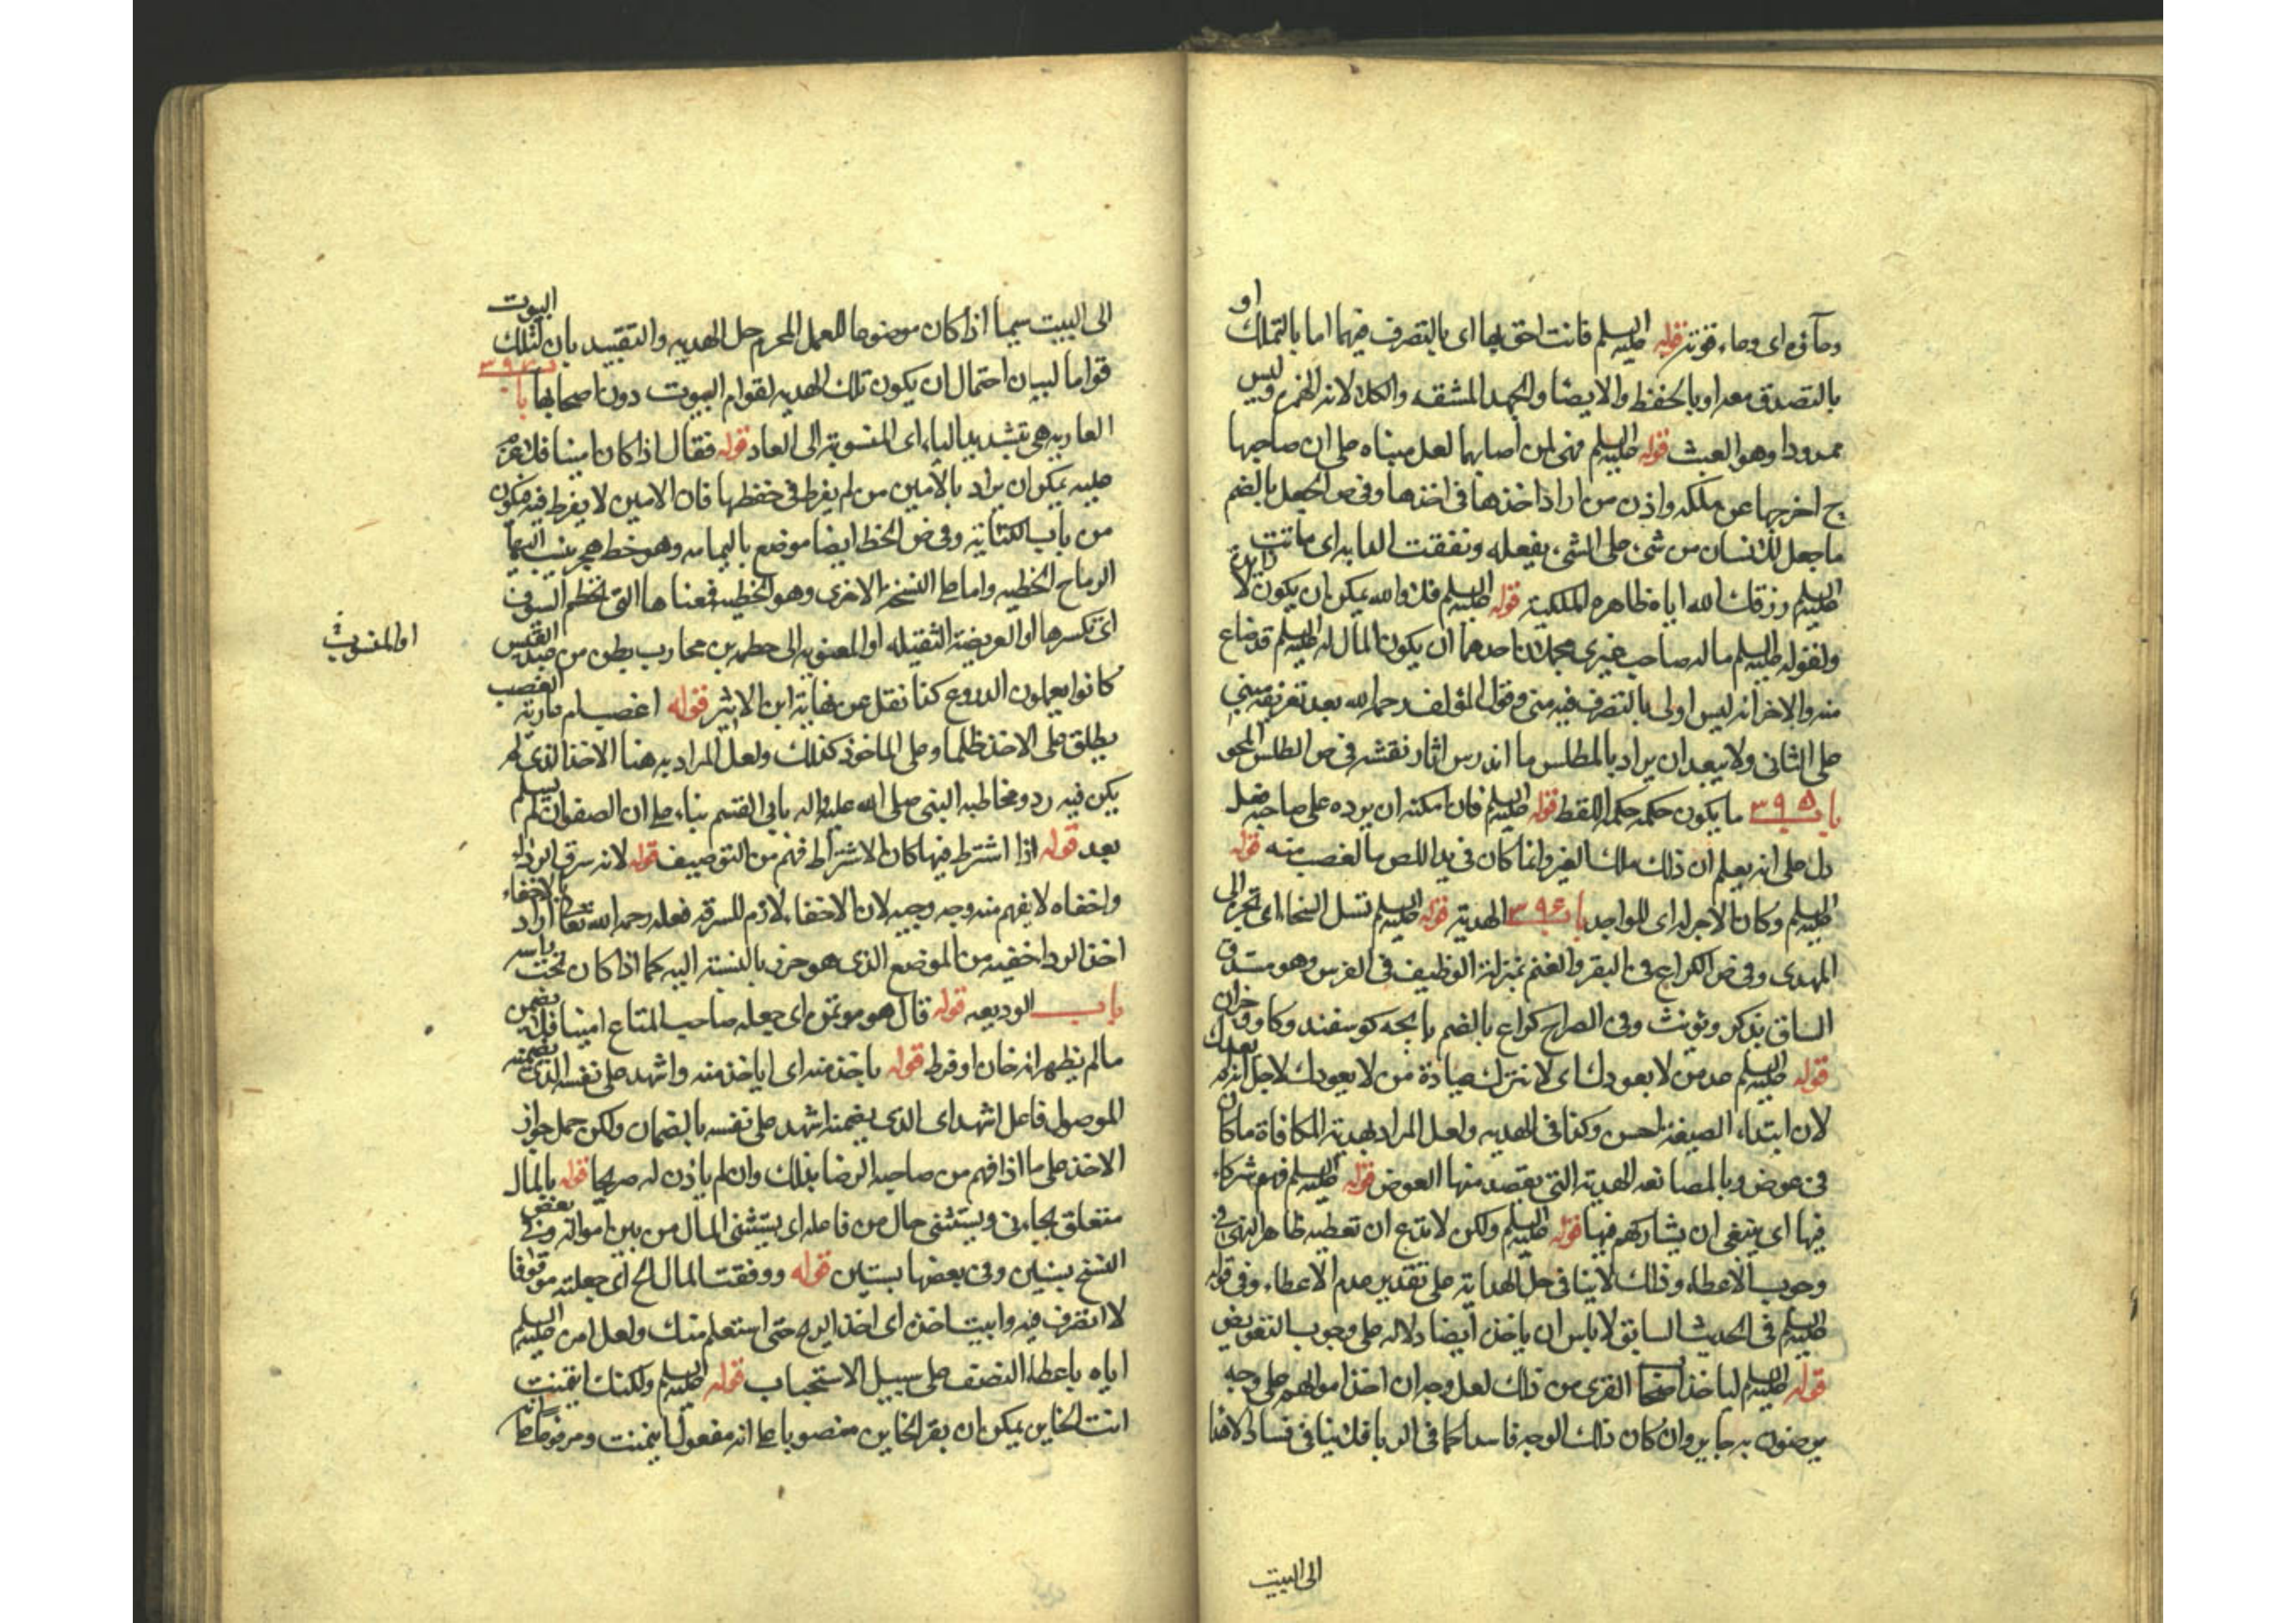 وحاؤه اى وعاء قوته قوله عليه السلم فانت احق بها اى بالتصرف فيهما اما بالتملك او
بالتصدق معه او بالحفظ والايضا والجهد المشقه والكلا لانه الهمزه وليس
ممدودا وهو العبث قوله عليه السلم فهى لمن اصابهما لعل مبناه على ان صاحبها
ح اخرجها عن ملكه واذن من اراد اخذها فى اخذها وفى ص الجعل بالضم
ما جعل للانسان من شىء على الشىء يفعله ونفقت الدابه اى ماتت
عليه السلم رزقك الله اياه ظاهره الملكية قوله عليه السلم فلا والله يمكن ان يكون
ولقوله عليه السلم ماله صاحب غيرى محملان احدهما ان يكون المال له عليه السلم قد ضاع
منه والاخر انه ليس اولى بالتصرف فيه منى وقول المؤلف رحمه الله بعد تعريفه مبنى
على الثانى ولا يبعد ان يراد بالمطلس ما اندرس اثار نقشه فى ص الطلس المحو
باب ٣٩٥ ما يكون حكمه حكم اللقطه قوله عليه السلم فان امكنه ان يرده على صاحبه فعل
دل على انه يعلم ان ذلك ملك الغير وانما كان فى يد اللص بالغصب منه قوله
عليه السلم وكان الاجر له اى للواجد باب ٣٩٦ الهدية قوله عليه السلم تسل السخائم اى تجر الى
المهدى وفى ص الكراع فى البقر والغنم بمنزلة الوظيف فى الفرس وهو مستدق
الساق يذكر ويونث وفى الصراح كراع بالضم پاچه كوسفند وكاو وجزان
قوله عليه السلم عد من لا يعودك اى لا تترك عيادة من لا يعودك لاجل انه لم يعدك
لان ابتداء الصيغة احسن وكذا فى الهديه ولعل المراد بهدية المكافاة ما كان
فى عوض وبالمصانعه الهدية التى يقصد منها العوض قوله عليه السلم فهم شركاء
فيها اى ينبغى ان يشاركهم فيها قوله عليه السلم ولكن لا تدع ان تعطيه ظاهر النهى فى
وجوب الاعطاء وذلك لا ينافى حل الهداية على تقدير عدم الاعطاء وفى قوله
عليه السلم فى الحديث السابق لا باس ان ياخذ ايضا دلاله على وجوب التعويض
قوله عليه السلم لياخذ اصحاب القرى من ذلك لعل وجه ان اخذ اموالهم على وجه
يرضون به جايز وان كان ذلك الوجه فاسدا كما فى الربا فلا ينافى فساد
الى البيت
الى البيت سيما اذا كان موضوعا للعمل المحرم حل الهديه والتقييد بان لتلك البيوت
قواما لبيان احتمال ان يكون تلك الهديه لقوام البيوت دون اصحابها باب
العاريه هى بتشديد الياء اى المنسوبة الى العار قوله فقال اذا كان امينا فلا غرم
عليه يمكن ان يراد بالامين من لم يفرط فى حفظها فان الامين لا يفرط فيه فيكون
من باب الكناية وفى ص الخط ايضا موضع باليمامه وهو خط هجر ينسب اليها
الرماح الخطيه واما على النسخة الاخرى وهو الحطميه فمعناها التى تحطم السيوف
اى تكسرها او العريضة الثقيله او المنسوبه الى حطمه بن محارب بطن من عبد القيس
او المنسوبة
كانوا يعملون الدروع كذا نقل عن نهاية ابن الاثير قوله اغصب ام عارية الغصب
يطلق على الاخذ ظلما وعلى الماخوذ كذلك ولعل المراد به هنا الاخذ الذى لم
يكن فيه رد ومخاطبه النبى صلى الله عليه واله بابى القسم بناء على ان الصفوان لم يسلم
بعد قوله اذا اشترط فيها كان الاشتراط فهم من التوصيف قوله لانه سرق الرداء
واخفاه لا يفهم منه وجه وجيه لان الاخفاء لازم للسرقه فعله رحمه الله تعالى اراد بالاخفاء
اخذ الرداء خفيه من الموضع الذى هو حرز بالنسبة اليه كما اذا كان تحت راسه
باب الوديعه قوله قال هو موتمن اى جعله صاحب المتاع امينا فلا يضمن
مالم يظهر انه خان او فرط قوله ياخذ منه اى اياخذ منه واشهد على نفسه الذى يضمنه
الموصول فاعل اشهد اى الذى يضمنه اشهد على نفسه بالضمان ولكن حمل جواز
الاخذ على ما اذا فهم من صاحبه الرضا بذلك وان لم ياذن له صريحا قوله بالمال
متعلق بجاءنى ويستثنى حال من فاعله اى يستثنى المال من بين امواله وفى بعض
النسخ بسنين وفى بعضها بستين قوله ووقفت المال الخ اى جعلته موقوفا
لا اتصرف فيه وابيت اخذه اى اخذ الربح حتى استعلم منك ولعل امره عليه السلم
اياه باعطاء النصف على سبيل الاستحباب قوله عليه السلم ولكنك ايتمنت
انت الخاين يمكن ان يقر الخاين منصوبا على انه مفعول ايتمنت ومرفوعا على